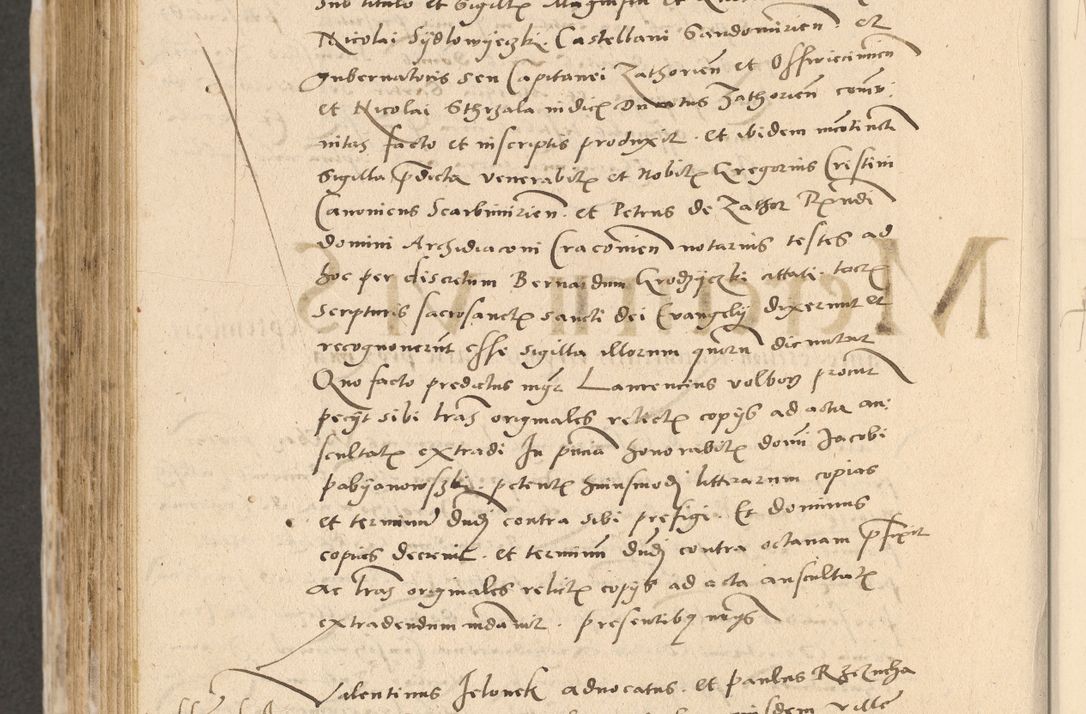 sub titulo et sigillis Magnifici et
Nicolai Sydlowyeczki Castellani Sandomirien et
gubernatoris seu Capitanei Zathorien et Osswiecimien
et Nicolai Sthrzala iudicis Zathorien
facto et in scriptis produxit. Et ibidem
Sigilla predicta venerabilis et Nobilis Gregorius Cristini
Canonicus Scarbimirien. et Petrus de Zathor Rndi
domini Archidiaconi Cracovien notarius testes ad
hoc per discretum Bernardum Grodzyczki citati. tactis
scripturis sacrosanctis sancti dei Evangelij dixerunt et
recognoverunt esse sigilla illorum quorum dicuntur
Quo facto predictus mgr Laurencius volbor procur
pecyt sibi lras originales relictis copijs ad acta au:
scultatis extradi In pncia honorabilis domi Jacobi
Pabyanowszky. petentis huiusmodj litterarum copias
et terminum dndj contra sibi prefigi. Et dominus
copias decrevit. et terminum dndj contra octavam prefixit
ac lras originales relictis copijs ad acta auscultatis
extradendum mdavit. presentibus
Valentinus Jelonek advocatus. et paulus Rzezucha
ville
Mercurii